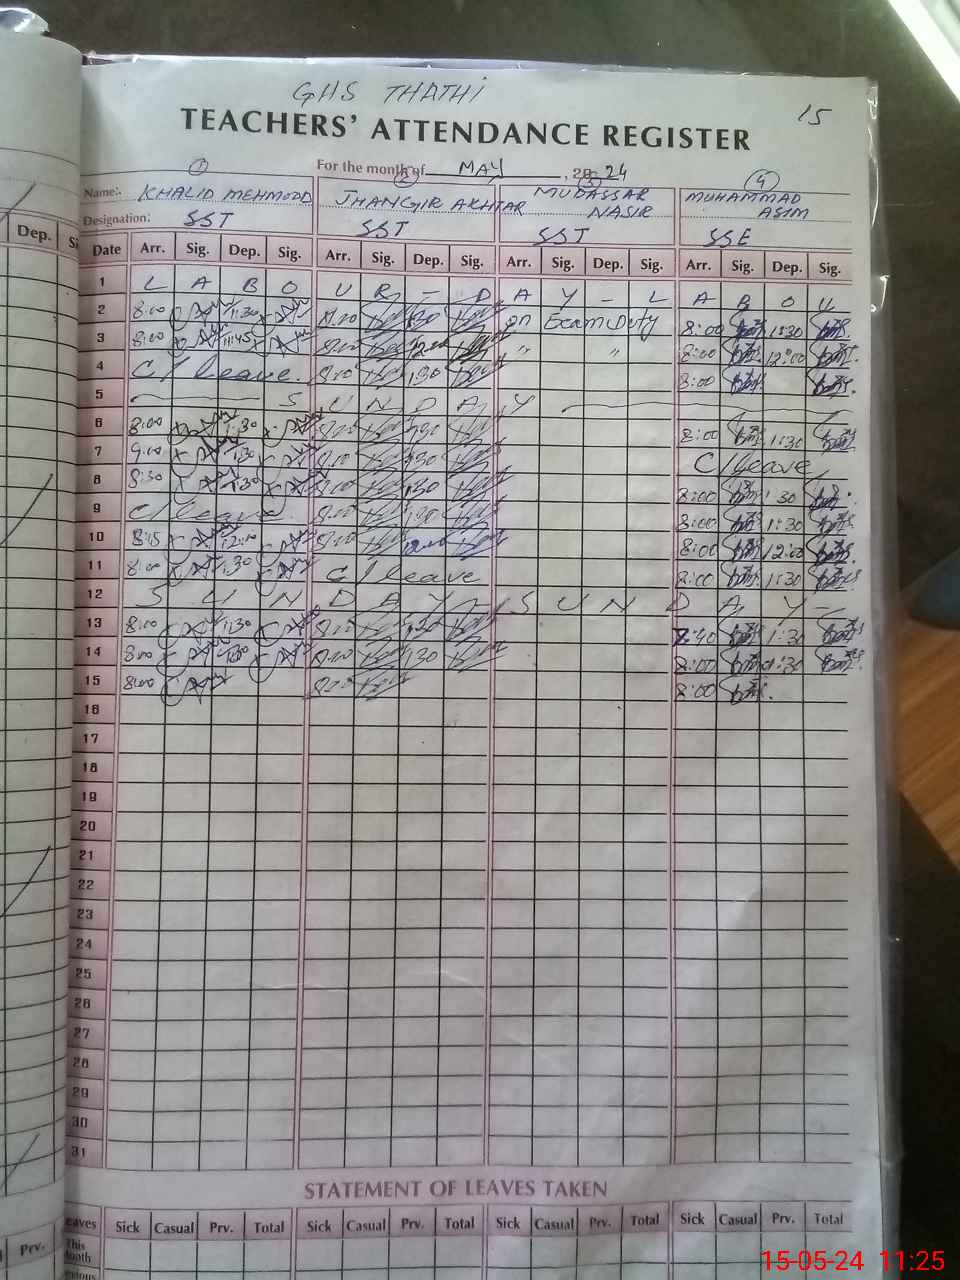 GHS THATHI
15
TEACHERS' ATTENDANCE REGISTER
For the month of MAY, 20 24
1 2 3 4
Name: KHALID MEHMOOD JHANGIR AKHTAR MUDASSAR NASIR MUHAMMAD ASIM
Designation: SST SST SST SSE
Dep.
Date Arr. Sig. Dep. Sig. Arr. Sig. Dep. Sig. Arr. Sig. Dep. Sig. Arr. Sig. Dep. Sig.
1 L A B O U R - D A Y - L A B O U
2 8:00 11:30 8:00 1:30 on Exam Duty 8:00 1:30
3 8:00 11:45 8:00 12:00 " " 8:00 12:00
4 C/leave. 8:00 1:30 8:00
5 S U N D A Y
6 8:00 1:30 8:00 1:30 8:00 1:30
7 9:00 1:30 8:00 1:30 C/leave
8 8:30 1:30 8:00 1:30 8:00 1:30
9 C/leave. 8:00 1:30 8:00 1:30
10 8:15 12:00 8:00 12:00 8:00 12:00
11 8:00 1:30 C/leave 8:00 1:30
12 S U N D A Y S U N D A Y -
13 8:00 1:30 8:00 1:30 7:40 1:30
14 8:00 1:30 8:00 1:30 8:00 1:30
15 8:00 8:00 8:00
16
17
18
19
20
21
22
23
24
25
26
27
28
29
30
31
STATEMENT OF LEAVES TAKEN
Prv.
eaves Sick Casual Prv. Total Sick Casual Prv. Total Sick Casual Prv. Total Sick Casual Prv. Total
This
Month
15-05-24 11:25